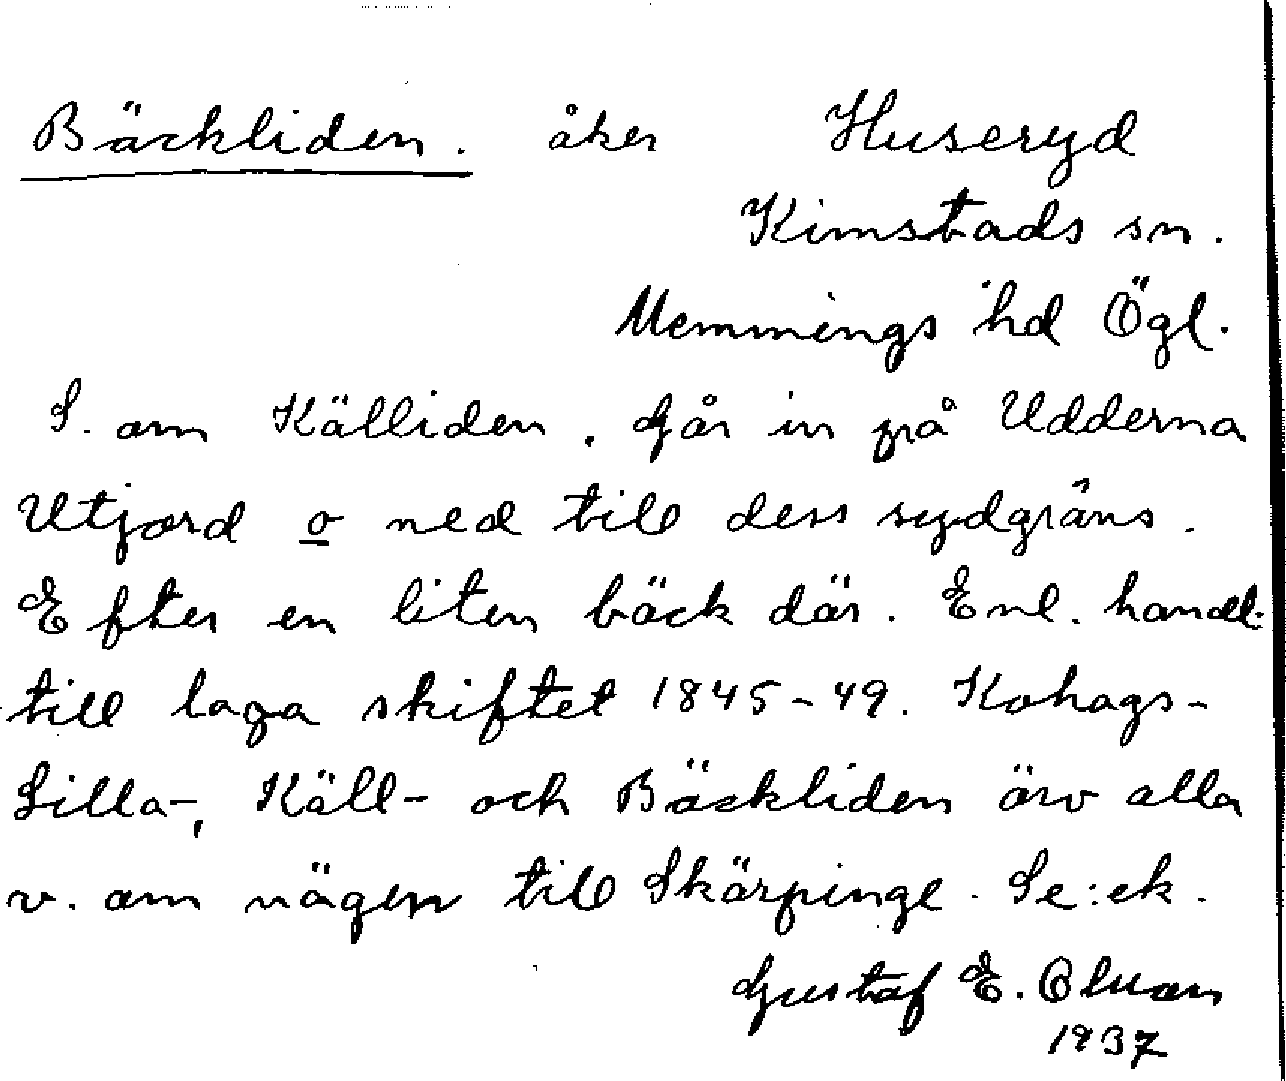 Bäckliden. åker Huseryd
Kimstads sn.
Memmings hd Ögl.
S. om Källiden. Går in på Udderna
Utjord o ned till dess sydgräns.
Efter en liten bäck där. Enl. handl.
till laga skiftet 1845-49. Kohags-
Lilla-, Käll- och Bäckliden äro alla
v. om vägen till Skärpinge. Se: ek.
Gustaf E.
1937